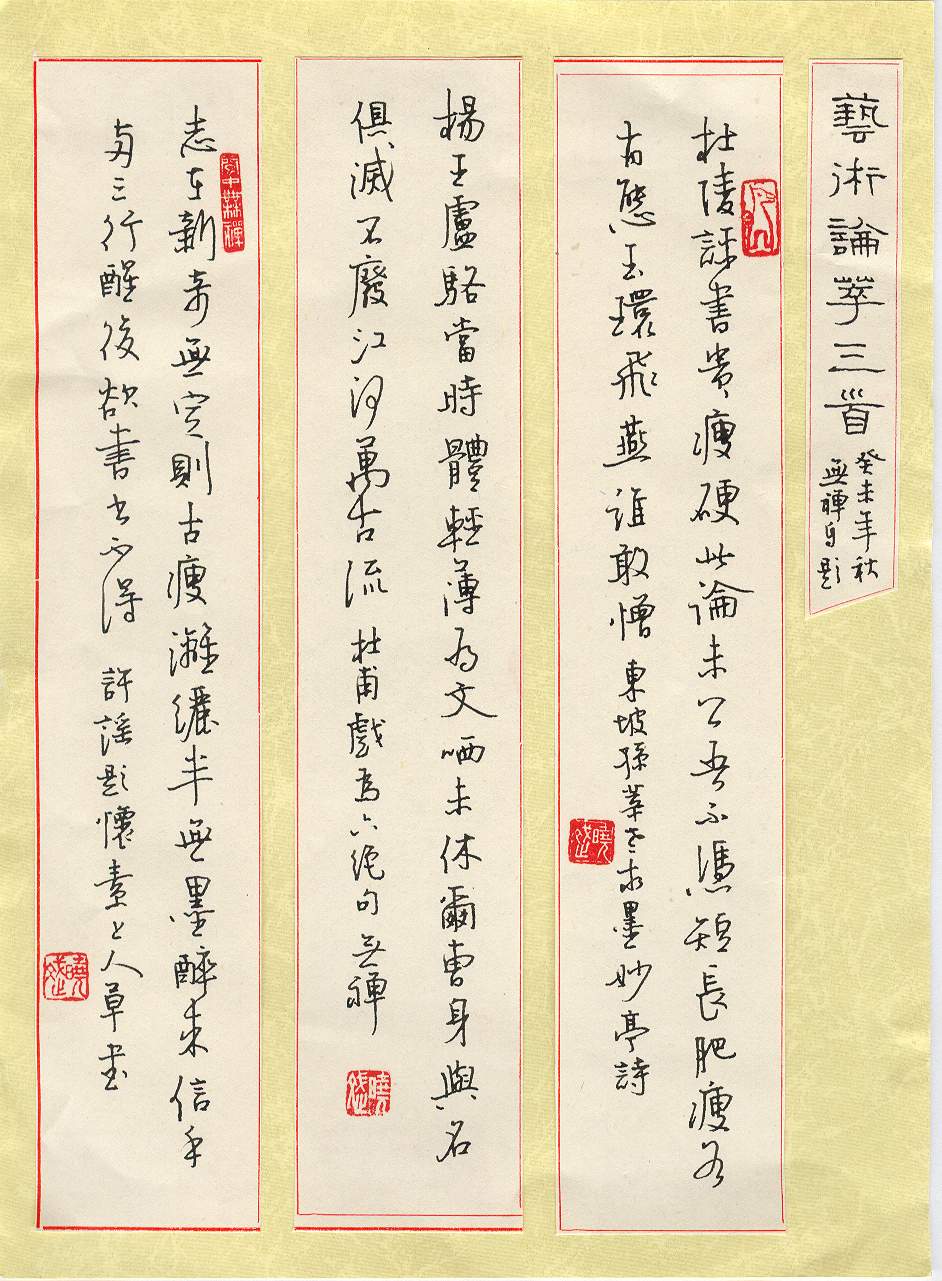 藝術論萃三首
癸未年秋
無禪自題
杜陵評書貴瘦硬此論未公吾不憑短長肥瘦各
有態玉環飛燕誰敢憎 東坡孫莘老求墨妙亭詩
楊王盧駱當時體輕薄為文哂未休爾曹身與名
俱滅不廢江河萬古流 杜甫戲為六絕句 無禪
志在新奇無定則古瘦灕纚半無墨醉來信手
兩三行醒後欲書書不得 許謠題懷素上人草書